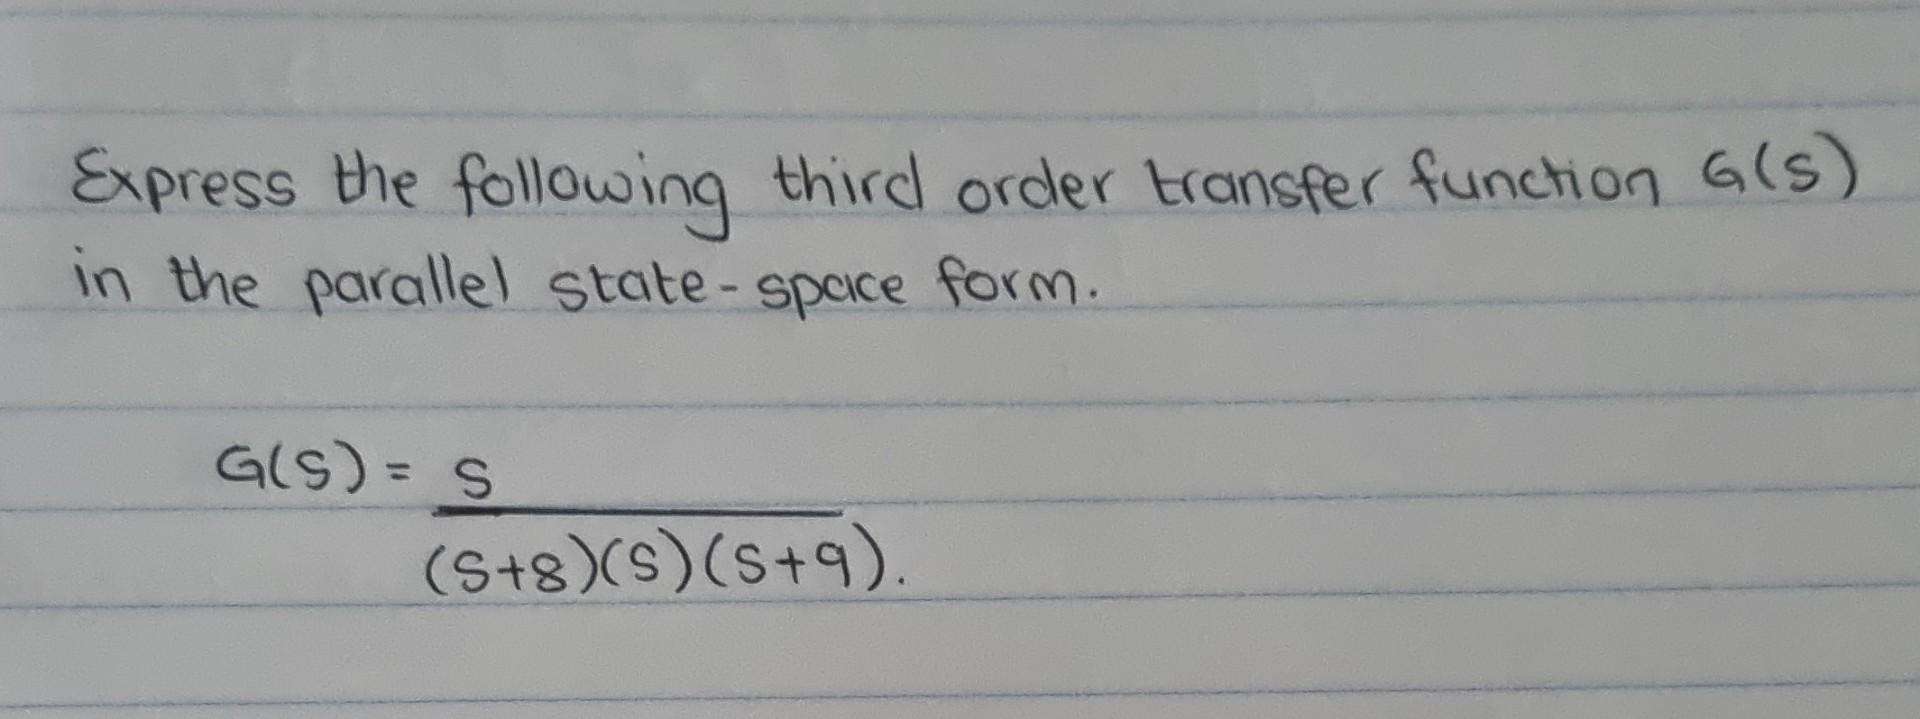 Express the following third order transfer function G(s)
in the parallel state-space form.
G(s) = s
(s+8)(s)(s+9).